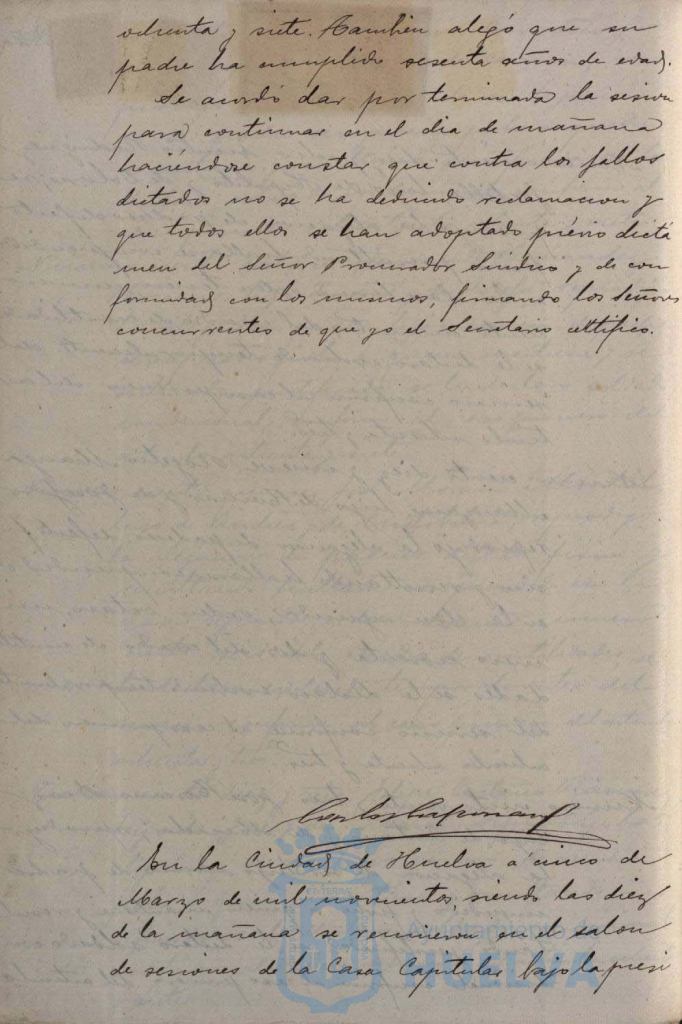 ochenta y siete. Tambien alegó que su
padre ha cumplido sesenta años de edad.
Se acordó dar por terminada la sesion
para continuar en el dia de mañana
haciéndose constar que contra los fallos
dictados no se ha deducido reclamacion y
que todos ellos se han adoptado prévio dictá
men del Señor Procurador Sindico y de con
formidad con los mismos, firmando los Señores
concurrentes de que yo el Secretario certifico.
En la Ciudad de Huelva á cinco de
Marzo de mil novecientos, siendo las diez
de la mañana se reunieron en el salon
de sesiones de la Casa Capitular bajo la presi
Ayuntamiento de
HUELVA